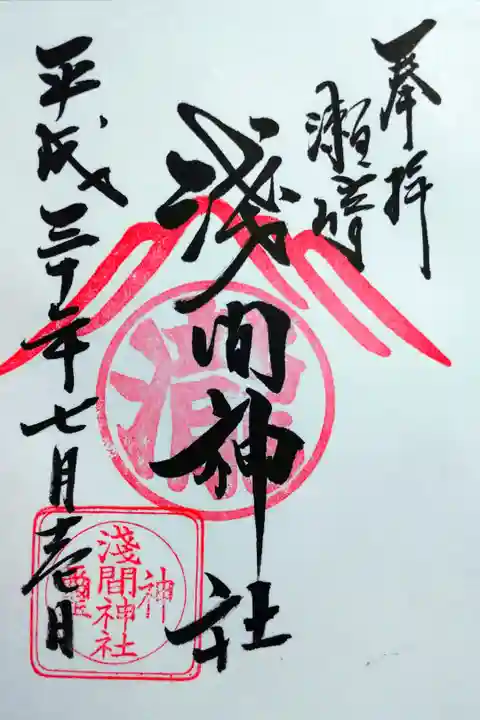 奉拝
瀬崎
淺間神社
平成三十年七月壱日
淺間神社
神璽